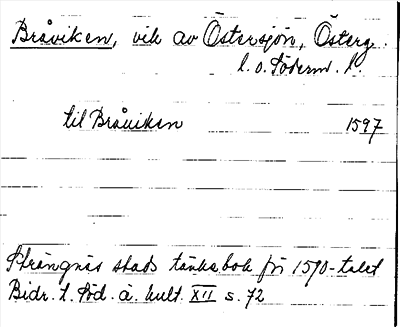 Bråviken, vik av Östersjön, Österg.
l. o. Söderm. l.
til Bråuiken 1597
Strängnäs stads tänkebok för 1590-talet
Bidr. t. Söd. ä. kult. XII s. 72